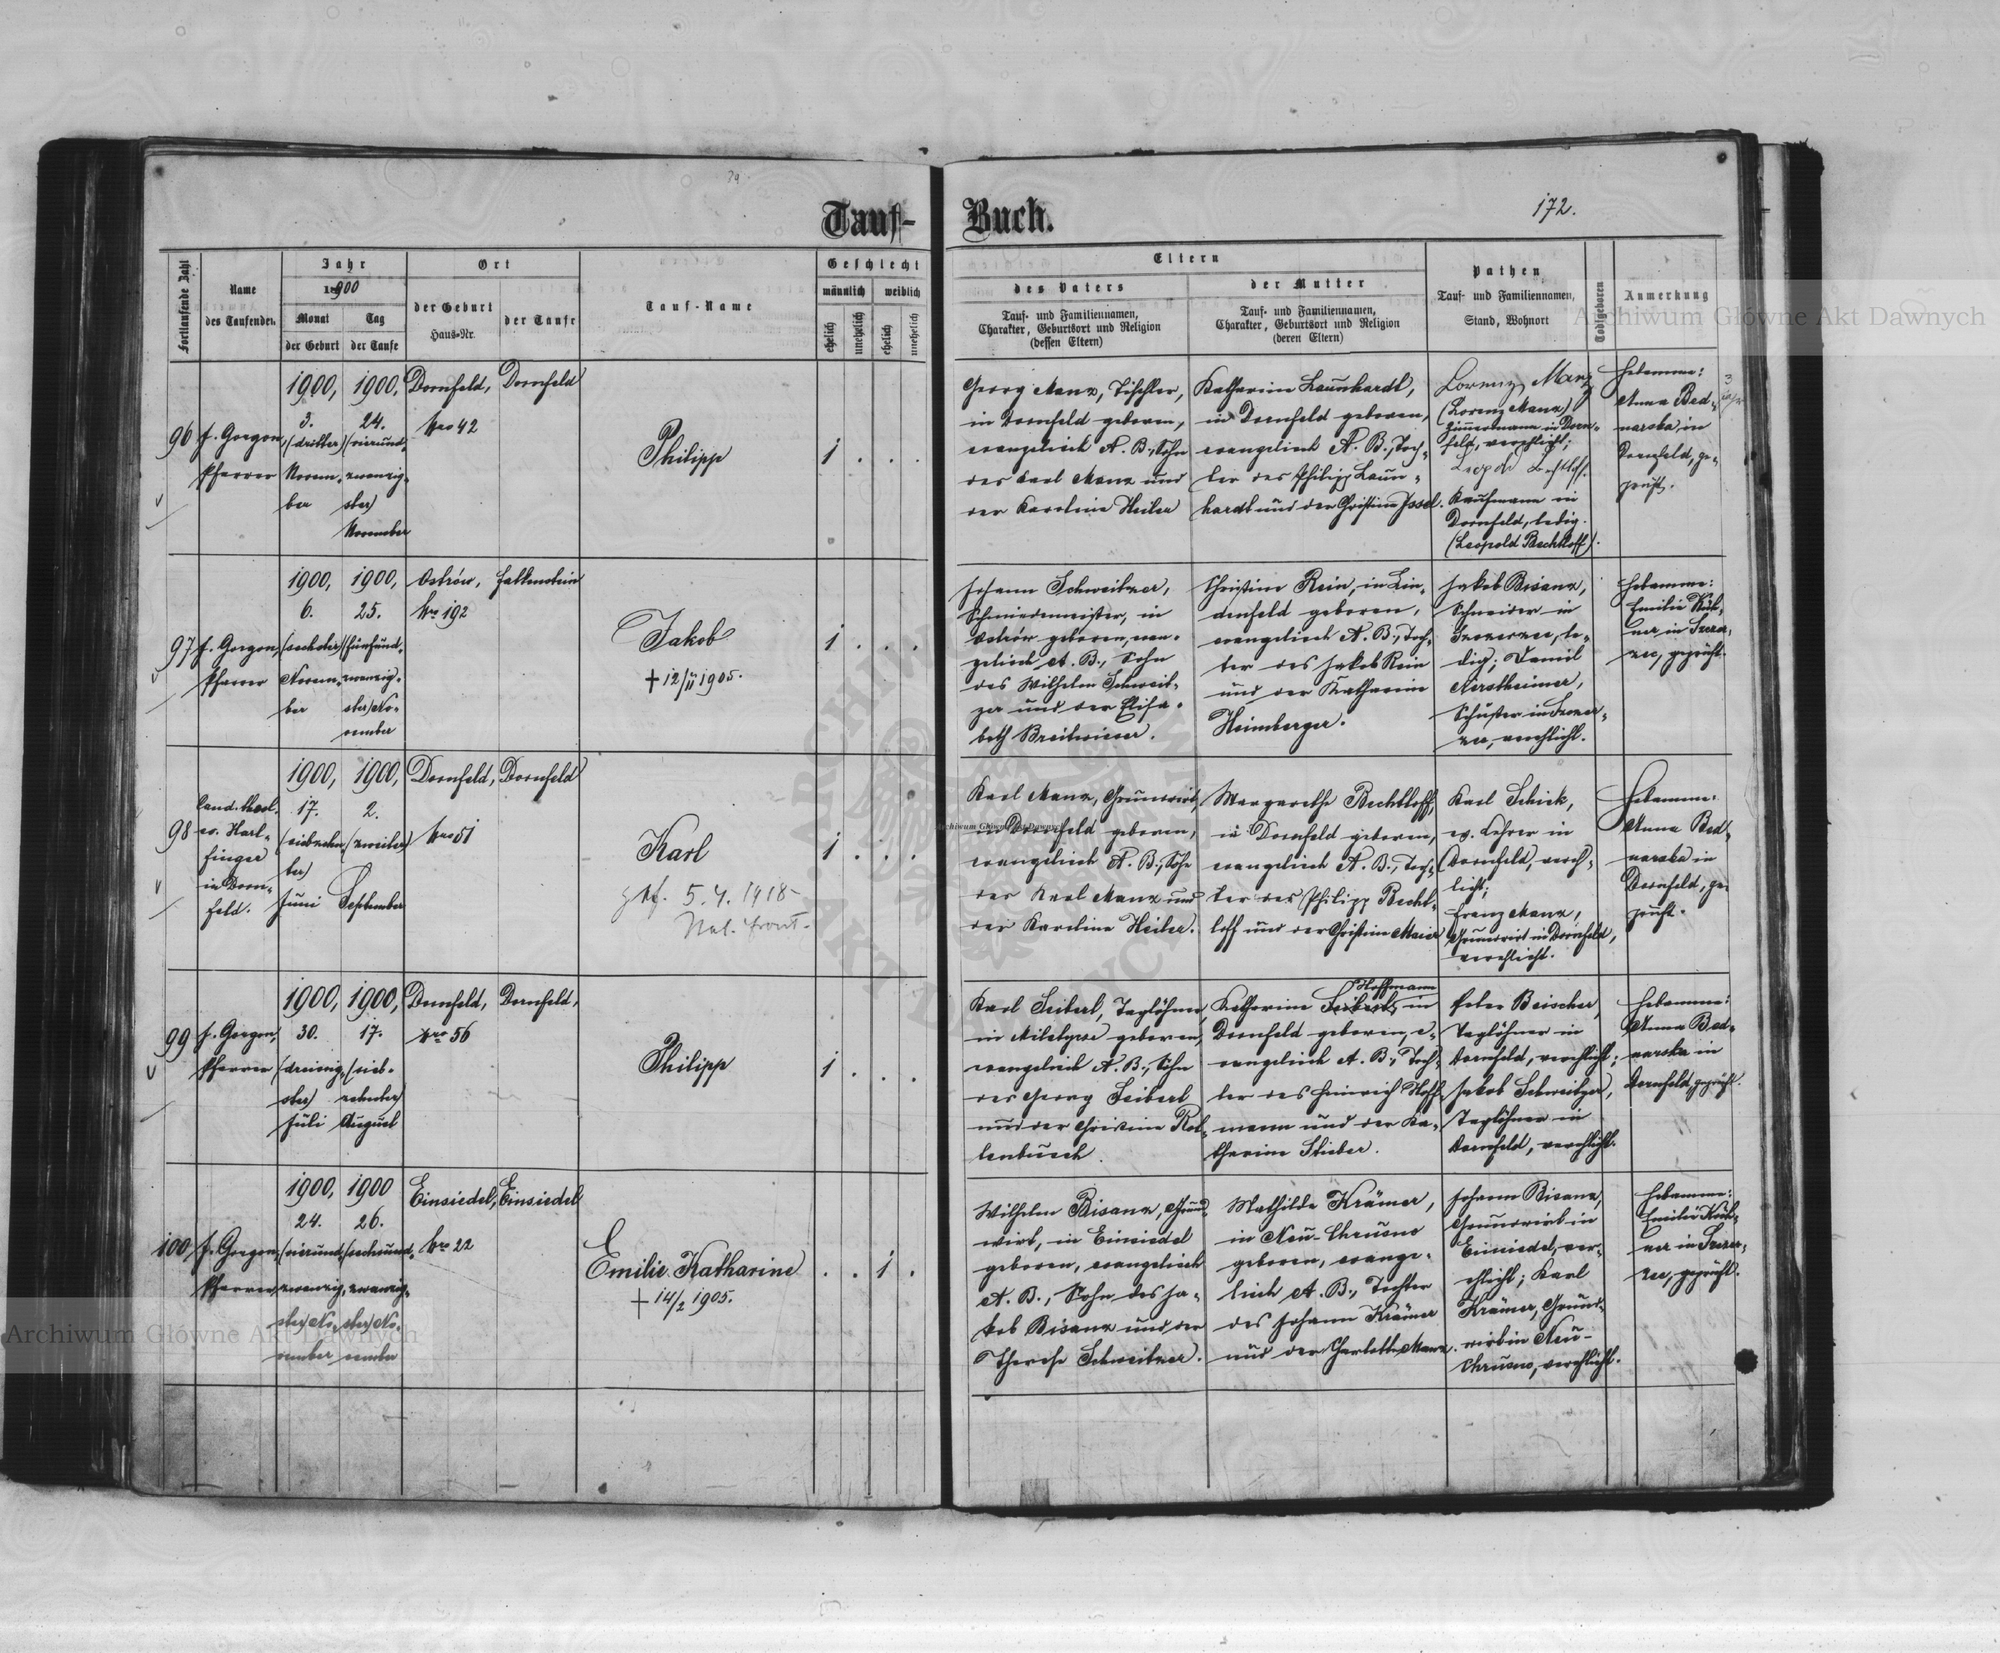 Tauf-
Buch.
172.
Fortlaufende Zahl
Name
des Taufenden.
Jahr
1900
Monat
Tag
der Geburt
der Taufe
Ort
der Geburt
Haus-Nr.
der Taufe
Tauf-Name
Geschlecht
männlich
weiblich
ehelich
unehelich
ehelich
unehelich
Eltern
des Vaters
Tauf- und Familiennamen,
Charakter, Geburtsort und Religion
(dessen Eltern)
der Mutter
Tauf- und Familiennamen,
Charakter, Geburtsort und Religion
(deren Eltern)
Pathen
Tauf- und Familiennamen,
Stand, Wohnort
Todtgeboren
Anmerkung
96
J. Gorgon,
Pfarrer
1900,
3.
(dritter)
Novem-
ber
1900,
24.
(vierund-
zwanzig-
ster)
November
Dornfeld,
Nro 42
Dornfeld
Philipp
1 . . .
Georg Manz, Tischler,
in Dornfeld geboren,
evangelisch A. B., Sohn
des Karl Manz und
der Karoline Heiler
Katharina Launhardt,
in Dornfeld geboren,
evangelisch A. B., Toch-
ter des Philipp Laun-
hardt und der Christine Issel.
Lorenz Manz
(Lorenz Manz)
Zimmermann in Dorn-
feld, verehlicht;
Leopold Bechtloff.
Kaufmann in
Dornfeld, ledig.
(Leopold Bechtloff).
Hebamme:
Anna Bed-
narska, in
Dornfeld, ge-
prüft.
97
J. Gorgon,
Pfarrer
1900,
6.
(sechster)
Novem-
ber
1900,
25.
(fünfund-
zwanzig-
ster) No-
vember
Ostrów,
Nro 192
Falkenstein
Jakob
+ 12/II 1905.
1 . . .
Johann Schweitzer,
Schmiedemeister, in
Ostrów geboren, evan-
gelisch A. B., Sohn
des Wilhelm Schweit-
zer und der Elisa-
beth Breitwieser.
Christine Rein, in Lin-
denfeld geboren,
evangelisch A. B., Toch-
ter des Jakob Rein
und der Katharine
Heimberger.
Jakob Bisanz,
Schneider in
Szczerzec, le-
dig; Daniel
Nerstheimer,
Schuster in Szczer-
zec, verehlicht.
Hebamme:
Emilie Küh-
ner in Szczer-
zec, geprüft.
98
Cand. theol.
ev. Harl-
finger
in Dorn-
feld.
1900,
17.
(siebzehn-
ter)
Juni
1900,
2.
(zweiter)
September
Dornfeld,
Nro 51
Dornfeld
Karl
5. 4. 1918
1 . . .
Karl Manz, Grundwirt,
in Dornfeld geboren,
evangelisch A. B., Sohn
des Karl Manz und
der Karoline Heiler.
Margarethe Bechtloff,
in Dornfeld geboren,
evangelisch A. B., Toch-
ter des Philipp Becht-
loff und der Christine Maier
Karl Schick,
ev. Lehrer in
Dornfeld, vereh-
licht;
Franz Manz,
Grundwirt in Dornfeld,
verehlicht.
Hebamme:
Anna Bed-
narska in
Dornfeld, ge-
prüft.
99
J. Gorgon,
Pfarrer
1900,
30.
(dreissig-
ster)
Juli
1900,
17.
(sieb-
zehnter)
August
Dornfeld,
Nro 56
Dornfeld,
Philipp
1 . . .
Karl Seibert, Taglöhner
in geboren,
evangelisch A. B., Sohn
des Georg Seibert
und der Christine Rol-
lenbusch.
Hoffmann
Katharine Seibert, in
Dornfeld geboren, e-
vangelisch A. B., Toch-
ter des Heinrich Hoff-
mann und der Ka-
tharine Stieber.
Peter Beischer,
Taglöhner in
Dornfeld, verehlicht;
Jakob Schweitzer,
Taglöhner in
Dornfeld, verehlicht.
Hebamme:
Anna Bed-
narska in
Dornfeld, geprüft.
100
J. Gorgon,
Pfarrer
1900,
24.
(vierund-
zwanzig-
ster) No-
vember
1900
26.
(sechsund-
zwanzig-
ster) No-
vember
Einsiedel,
Nro 22
Einsiedel
Emilie Katharine
+ 14/2 1905.
. . 1 .
Wilhelm Bisanz, Grund-
wirt, in Einsiedel
geboren, evangelisch
A. B., Sohn des Ja-
kob Bisanz und der
Therese Schweitzer.
Mathilde Krämer,
in Neu-Chrusno
geboren, evange-
lisch A. B., Tochter
des Johann Krämer
und der Charlotte Manz.
Johann Bisanz,
Grundwirt in
Einsiedel, ver-
ehlicht; Karl
Krämer, Grund-
wirt in Neu-
Chrusno, verehlicht.
Hebamme:
Emilie Küh-
ner in Szczer-
zec, geprüft.
Archiwum Główne Akt Dawnych
Archiwum Główne Akt Dawnych
Archiwum Główne Akt Dawnych